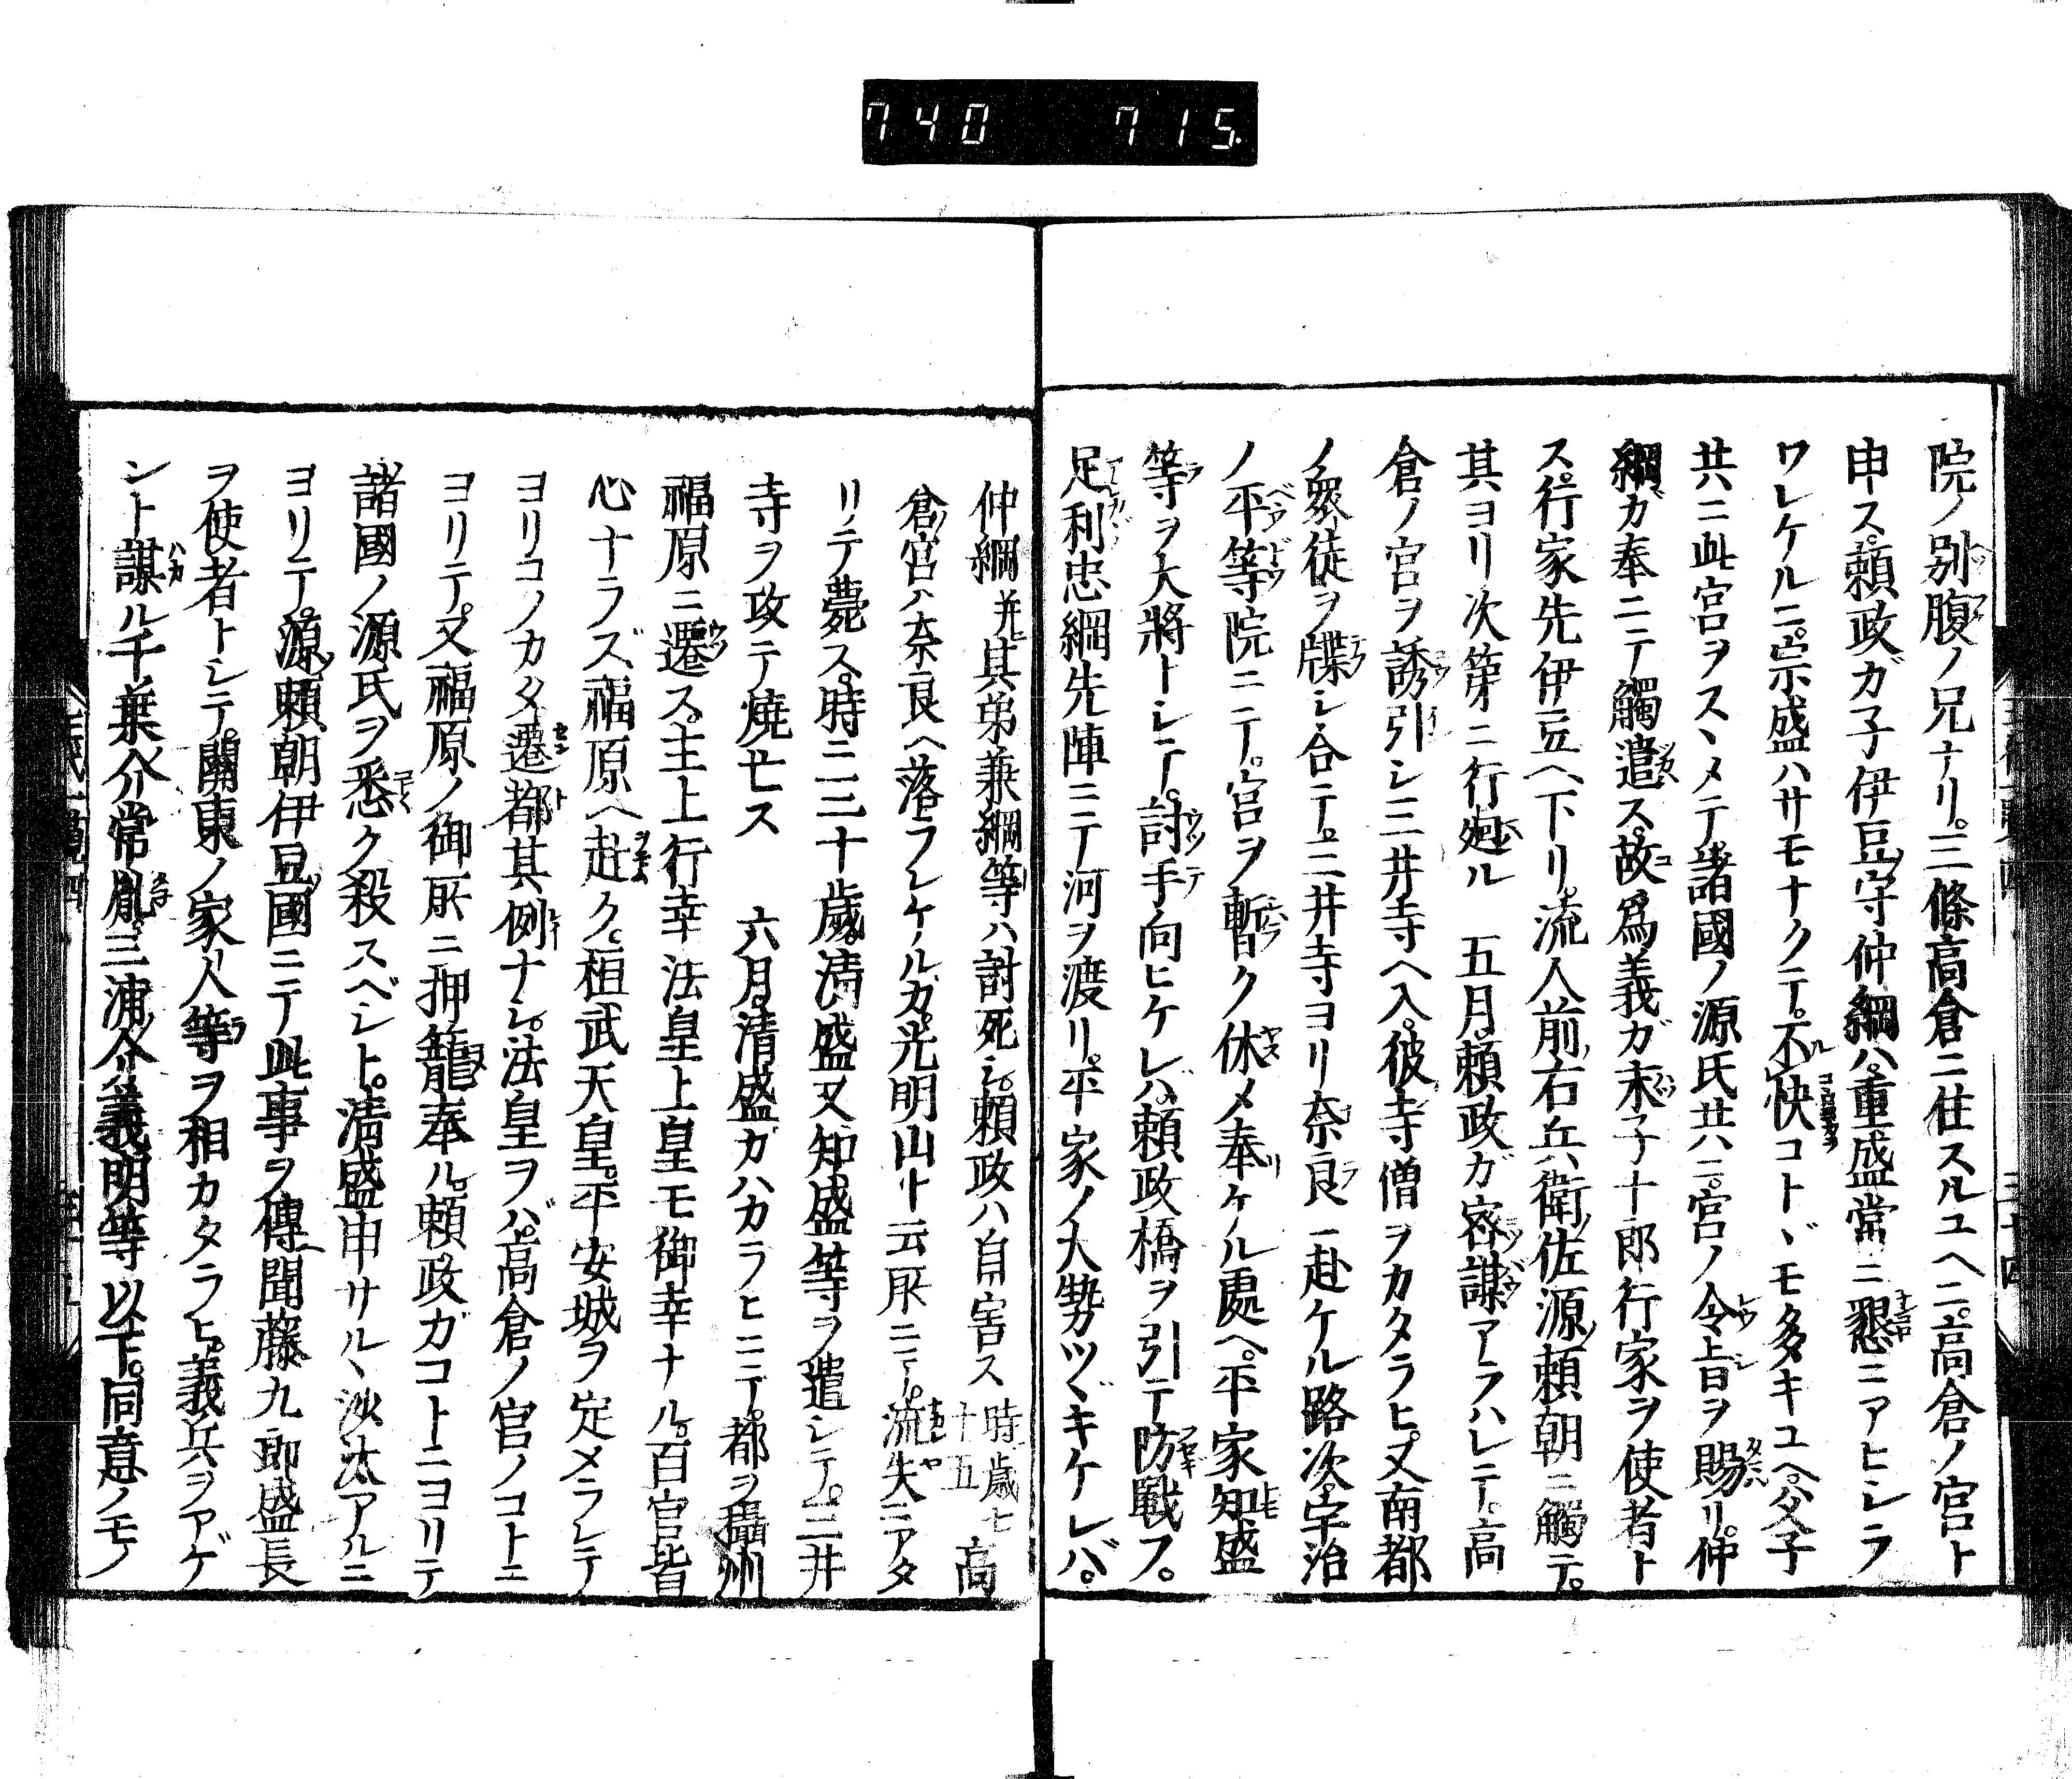 740 715.
院ノ別腹ノ兄ナリ。三條高倉ニ住スルユヘニ。高倉ノ宮ト
申ス。頼政ガ子伊豆守仲綱ハ。重盛常ニ懇ニアヒシラ
ワレケルニ。宗盛ハサモナクテ。不快コトヾモ多キユヘ。父子
共ニ此宮ヲスヽメテ。諸國ノ源氏共ニ。宮ノ令旨ヲ賜リ。仲
綱ガ奉ニテ觸遣ス。故爲義ガ末子十郎行家ヲ使者ト
ス。行家先伊豆ヘ下リ。流人前右兵衛佐源頼朝ニ觸テ。
其ヨリ次第ニ行廻ル 五月。頼政ガ密謀アラハレテ。高
倉ノ宮ヲ誘引シ三井寺ヘ入。彼寺僧ヲカタラヒ。又南都
ノ衆徒ヲ牒シ合テ。三井寺ヨリ奈良ニ赴ケル路次。宇治
ノ平等院ニテ。宮ヲ暫ク休メ奉ケル處ヘ。平家知盛
等ヲ大將トシテ。討手向ヒケレバ。頼政橋ヲ引テ防戰フ。
足利忠綱先陣ニテ河ヲ渡リ。平家ノ大勢ツヾキケレバ。
仲綱并其弟兼綱等ハ討死シ。頼政ハ自害ス時歳七十五 高
倉宮ハ奈良ヘ落ラレケルガ。光明山ト云所ニテ。流矢ニアタ
リテ薨ス。時ニ三十歳。清盛又知盛等ヲ遣シテ。三井
寺ヲ攻テ燒亡ス 六月。清盛ガハカラヒニテ。都ヲ攝州
福原ニ遷ス。主上行幸法皇上皇モ御幸ナル。百官皆
心ナラズ福原ヘ赴ク。桓武天皇。平安城ヲ定メラレテ
ヨリコノカタ遷都其例ナシ。法皇ヲバ。高倉ノ宮ノコトニ
ヨリテ。又福原ノ御所ニ押籠奉ル。頼政ガコトニヨリテ
諸國ノ源氏ヲ悉ク殺スベシト。清盛申サルヽ沙汰アルニ
ヨリテ。源頼朝伊豆國ニテ此事ヲ傳聞藤九郎盛長
ヲ使者トシテ。關東ノ家人等ヲ相カタラヒ。義兵ヲアゲ
ント謀ル千葉介常胤。三浦介義明等以下。同意ノモノ